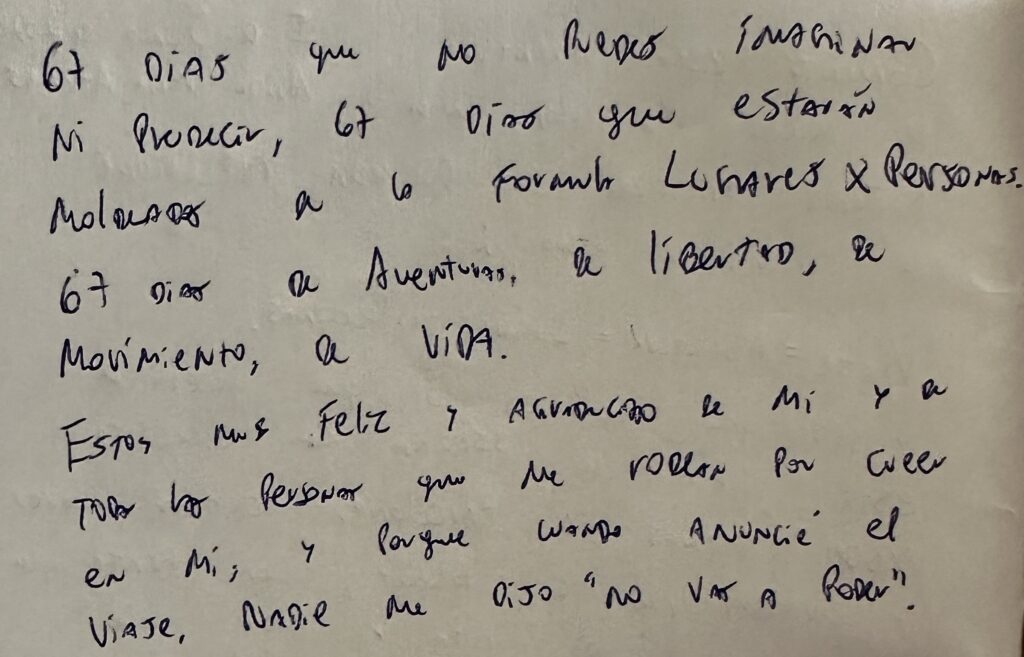 67 DÍAS que NO PUEDES IMAGINAR
Ni PREDECIR, 67 DÍAS que ESTARÁN
MOLDEADOS A la FORMULA LUGARES X PERSONAS.
67 DIAS DE AVENTURAS, DE LIBERTAD, DE
MOVIMIENTO, DE VIDA.
ESTOY MUY FELIZ Y AGRADECIDO DE MI Y DE
TODAS LAS PERSONAS que ME RODEAN POR CREER
EN MÍ; Y PORQUE CUANDO ANUNCIÉ el
VIAJE, NADIE ME DIJO "NO VAS A PODER".